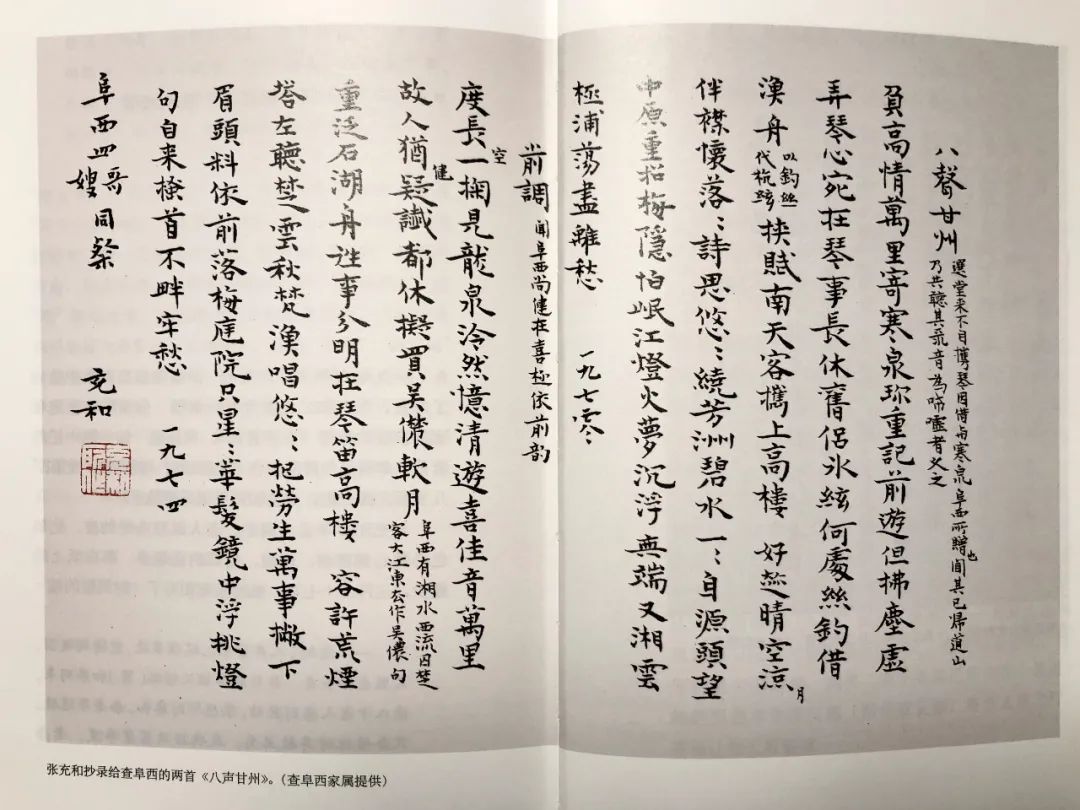 八聲甘州 選堂来不日携琴因借与寒泉阜西所贈也聞其已歸道山
乃共聽其录音為啼噓者久之
負高情萬里寄寒泉珎重記前遊但拂塵虛
弄琴心宛在琴事長休舊侣氷絃何處絲釣借
漁舟以釣絲代杭弦挟賦南天客攜上高樓 好趂晴空凉月
伴襟懷落〻詩思悠〻繞芳洲碧水一〻自源頭望
中原重招梅隱怕岷江燈火夢沉浮無端又湘雲
極浦蕩盡離愁 一九七零〻
前調 聞阜西尚健在喜極依前韵
度長空一掬見龍泉泠然憶清遊喜佳音萬里
故人猶健疑讖都休擬買吳儂軟月 阜西有湘水西流因楚
客大江東去作吳儂句
重泛石湖舟往事分明在琴笛高樓 容許荒煙
塔左聽楚雲秋梵漁唱悠〻把勞生萬事撇下
眉頭料依前落梅庭院只星〻華髮鏡中浮挑燈
句自来搔首不畔牢愁 一九七四
阜西四哥嫂同粲 充和
张充和抄录给查阜西的两首《八声甘州》。（查阜西家属提供）